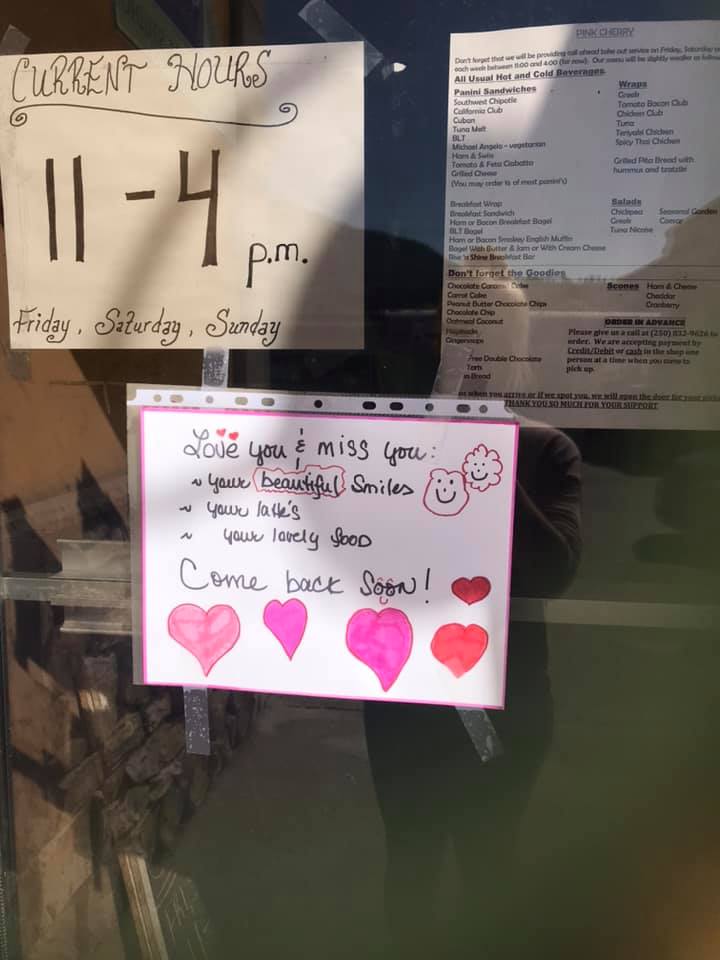 CURRENT HOURS
11 - 4
p.m.
Friday, Saturday, Sunday
PINK CHERRY
Don't forget that we will be providing call ahead take out service on Friday, Saturday
each week between 11:00 and 4:00 (for now). Our menu will be slightly smaller as
All Usual Hot and Cold Beverages
Panini Sandwiches
Southwest Chipotle
California Club
Cuban
Tuna Melt
BLT
Michael Angelo - vegetarian
Ham & Swiss
Tomato & Feta Ciabatta
Grilled Cheese
(You may order ½ of most panini's)
Wraps
Greek
Tomato Bacon Club
Chicken Club
Tuna
Teriyaki Chicken
Spicy Thai Chicken
Grilled Pita Bread with
hummus and tzatziki
Breakfast Wrap
Breakfast Sandwich
Ham or Bacon Breakfast Bagel
BLT Bagel
Ham or Bacon Smokey English Muffin
Bagel With Butter & Jam or With Cream Cheese
Rise 'n Shine Breakfast Bar
Salads
Chickpea Seasonal Garden
Greek Caesar
Tuna Nicoise
Don't forget the Goodies
Chocolate Caramel Cake
Carrot Cake
Peanut Butter Chocolate Chips
Chocolate Chip
Oatmeal Coconut
Gingersnaps
Free Double Chocolate
Tarts
Bread
Scones Ham & Cheese
Cheddar
Cranberry
ORDER IN ADVANCE
Please give us a call at (250) 832-9626 to
order. We are accepting payment by
Credit/Debit or cash in the shop one
person at a time when you come to
pick up.
when you arrive or if we spot you, we will open the door for your
THANK YOU SO MUCH FOR YOUR SUPPORT
Love you & miss you:
~ your beautiful smiles
~ your latte's
~ your lovely food
Come back soon!